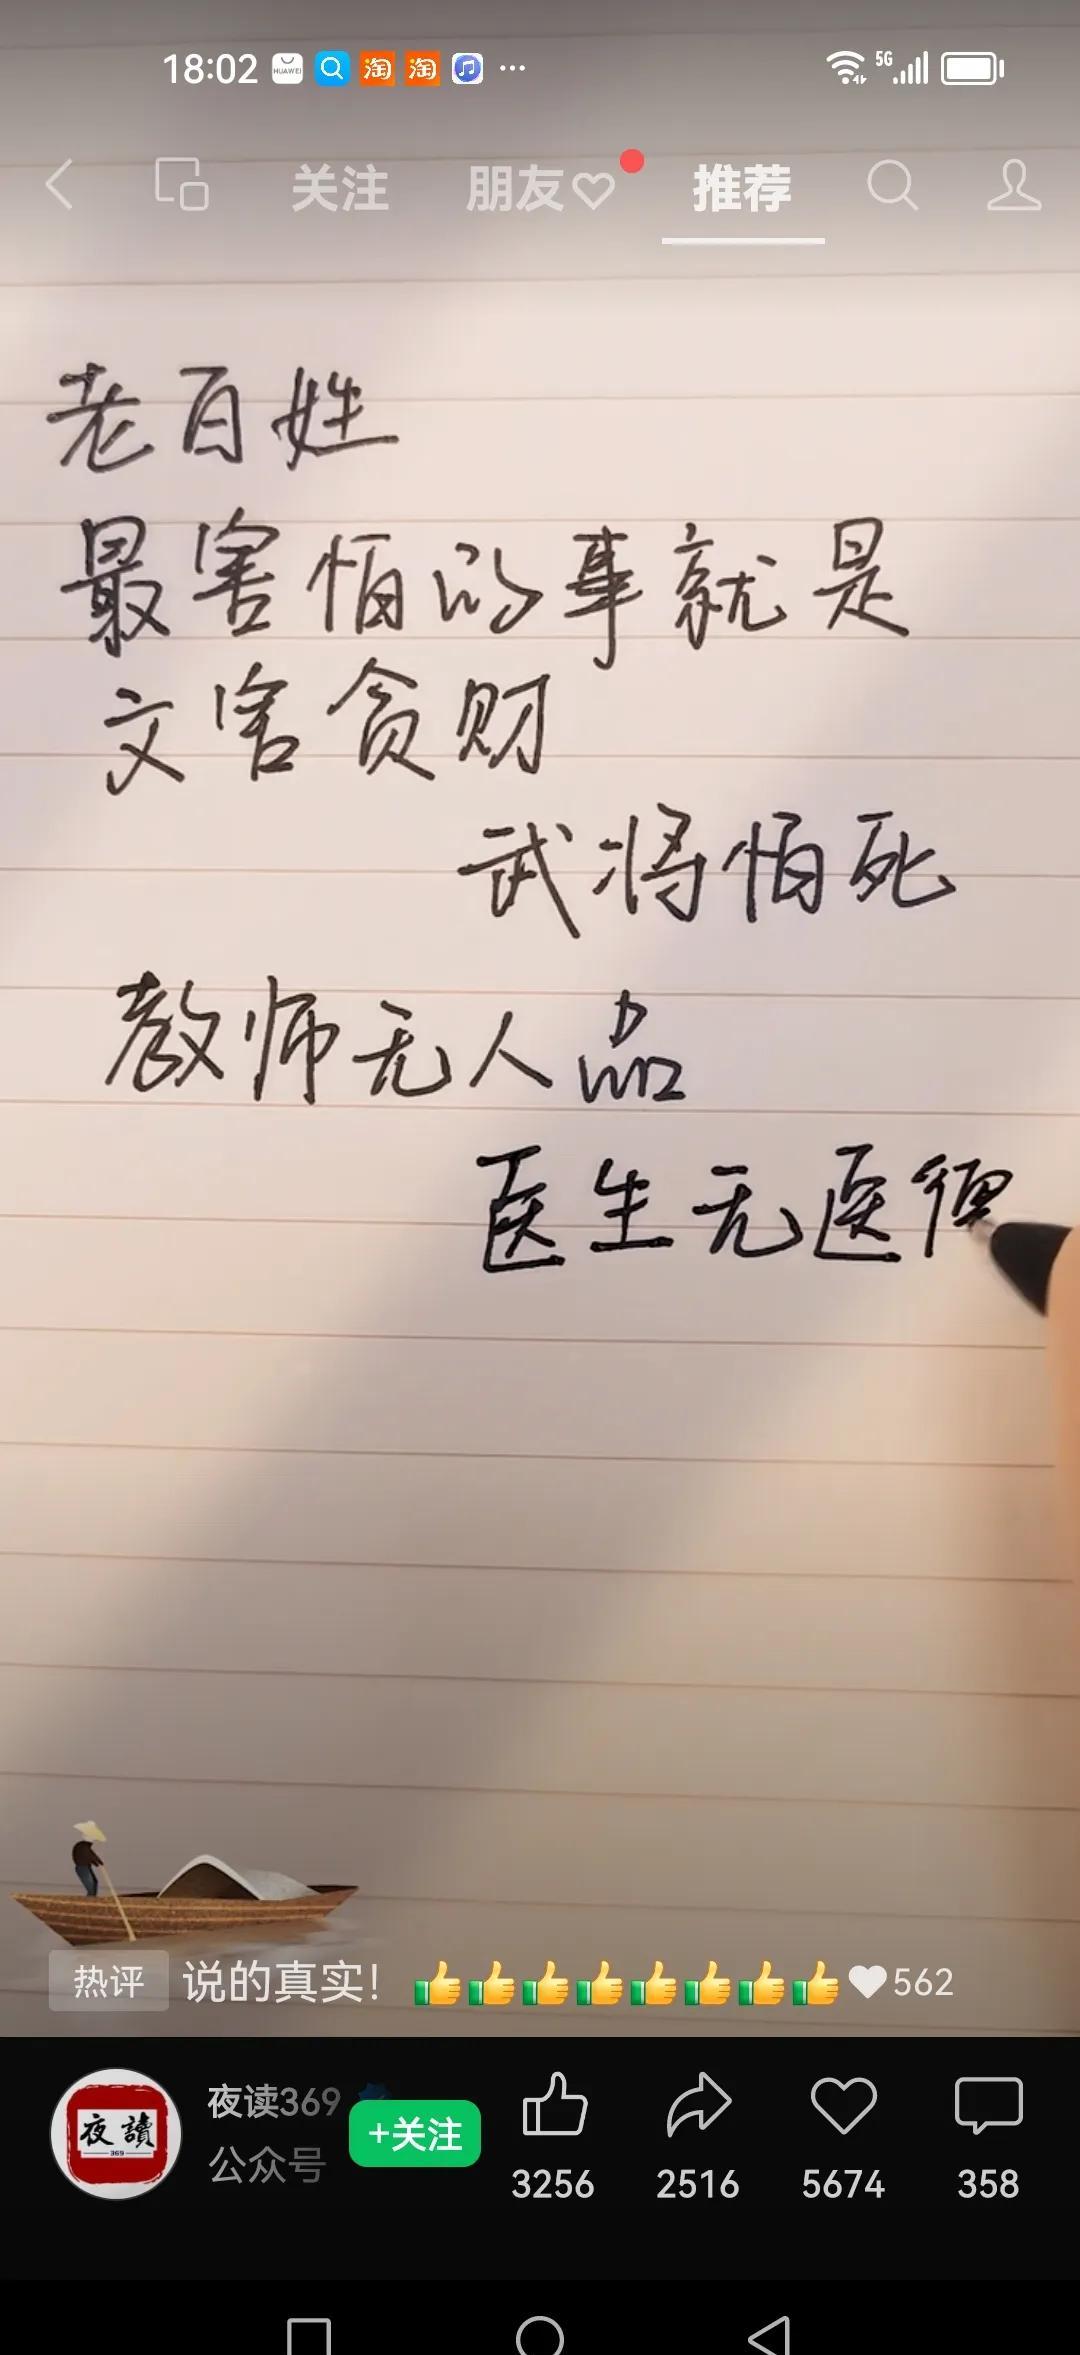 18:02 HUAWEI 淘 淘 ··· 5G
关注 朋友 推荐
老百姓
最害怕的事就是
文害贪财
武将怕死
教师无人品
医生无医德
热评 说的真实! 562
夜讀
369
夜读369
公众号
+关注
3256 2516 5674 358